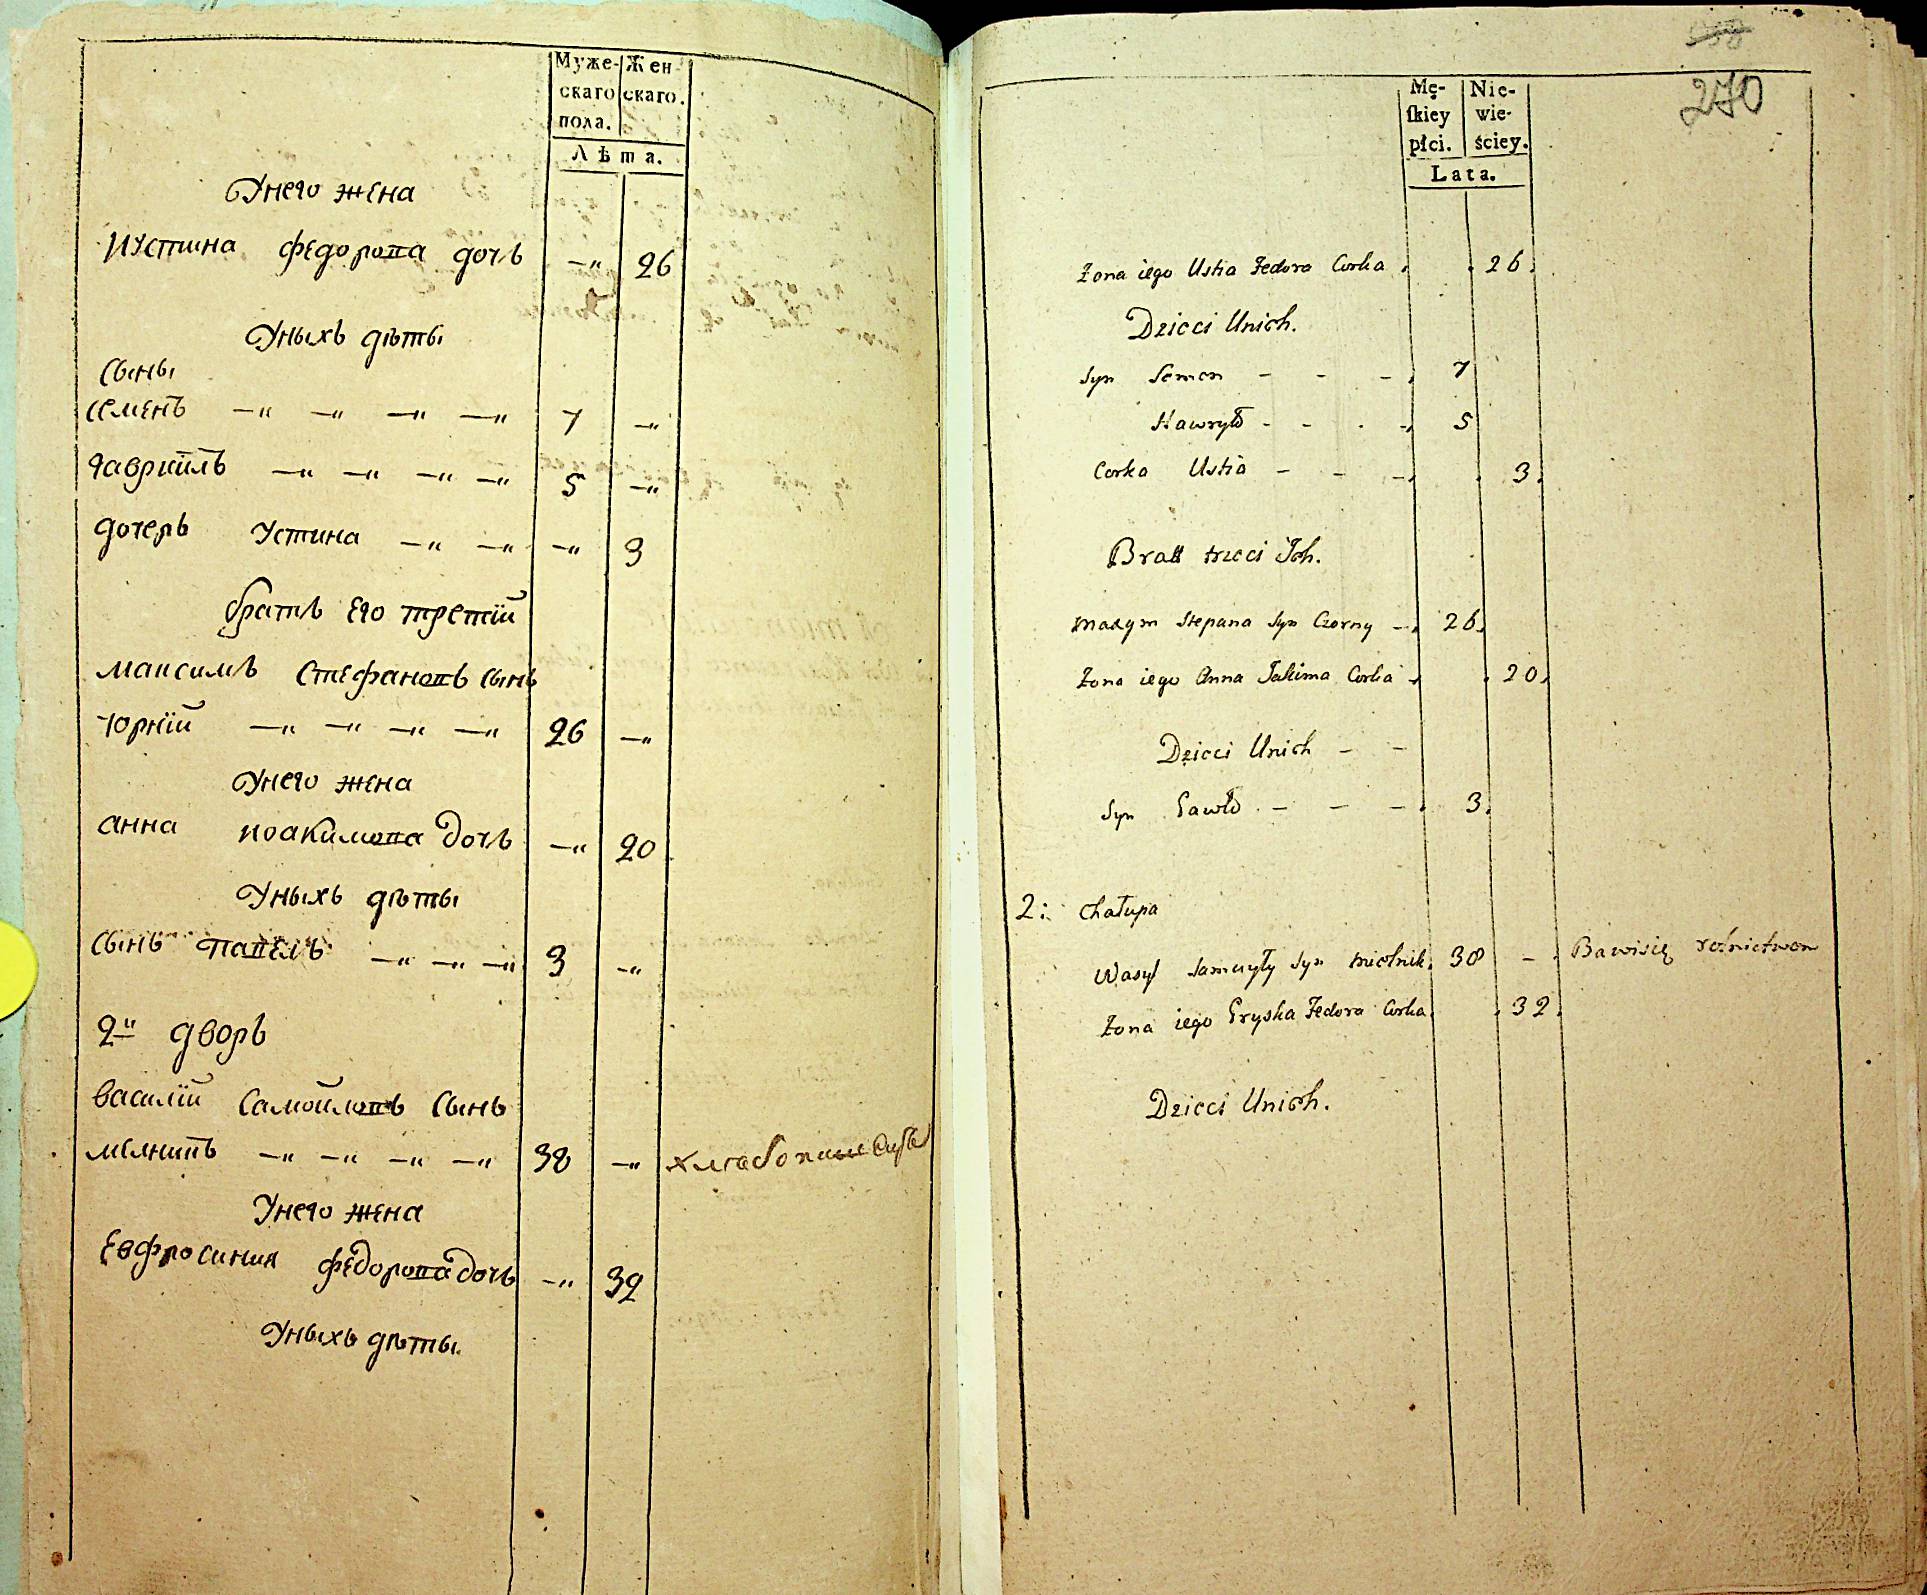 Муже- Жен
скаго скаго.
пола.
Лѣта.
Унего жена
Иустина федорова дочь —„ 26
Уныхъ дѣты
сыны
семенъ —„ —„ —„ —„ 7 —„
гавриилъ —„ —„ —„ —„ 5 —„
дочерь Устина —„ —„ —„ 3
братъ Его третїй
максимъ Стефановъ сынъ
чорнїй —„ —„ —„ —„ 26 —„
Унего жена
анна иоакимова дочь —„ 20
Уныхъ дѣты
сынъ павелъ —„ —„ —„ 3 —„
2й дворъ
василїй самойловъ сынъ
мелникъ —„ —„ —„ —„ 38 —„
Унего жена
Евфросиния федорова дочь —„ 32
Уныхъ дѣты.
270
Mę- Nie-
skiey wie-
płci. ściey.
Lata.
Żona iego Ustia Fedora Corka 26.
Dzieci Unich.
Syn Semen - - - 7
Hawryło - - - 5
Corka Ustia - - - 3.
Bratt trzeci Ich.
Maxym Stepana Syn Czorny - 26.
Żona iego Anna Jakima Corka 20.
Dzieci Unich - -
Syn Pawło - - - 3.
2: Chałupa
Wasyl Samuyły Syn Mielnik 38 - Bawisię rolnictwem
Żona iego Pryska Fedora Corka 32.
Dzieci Unich.